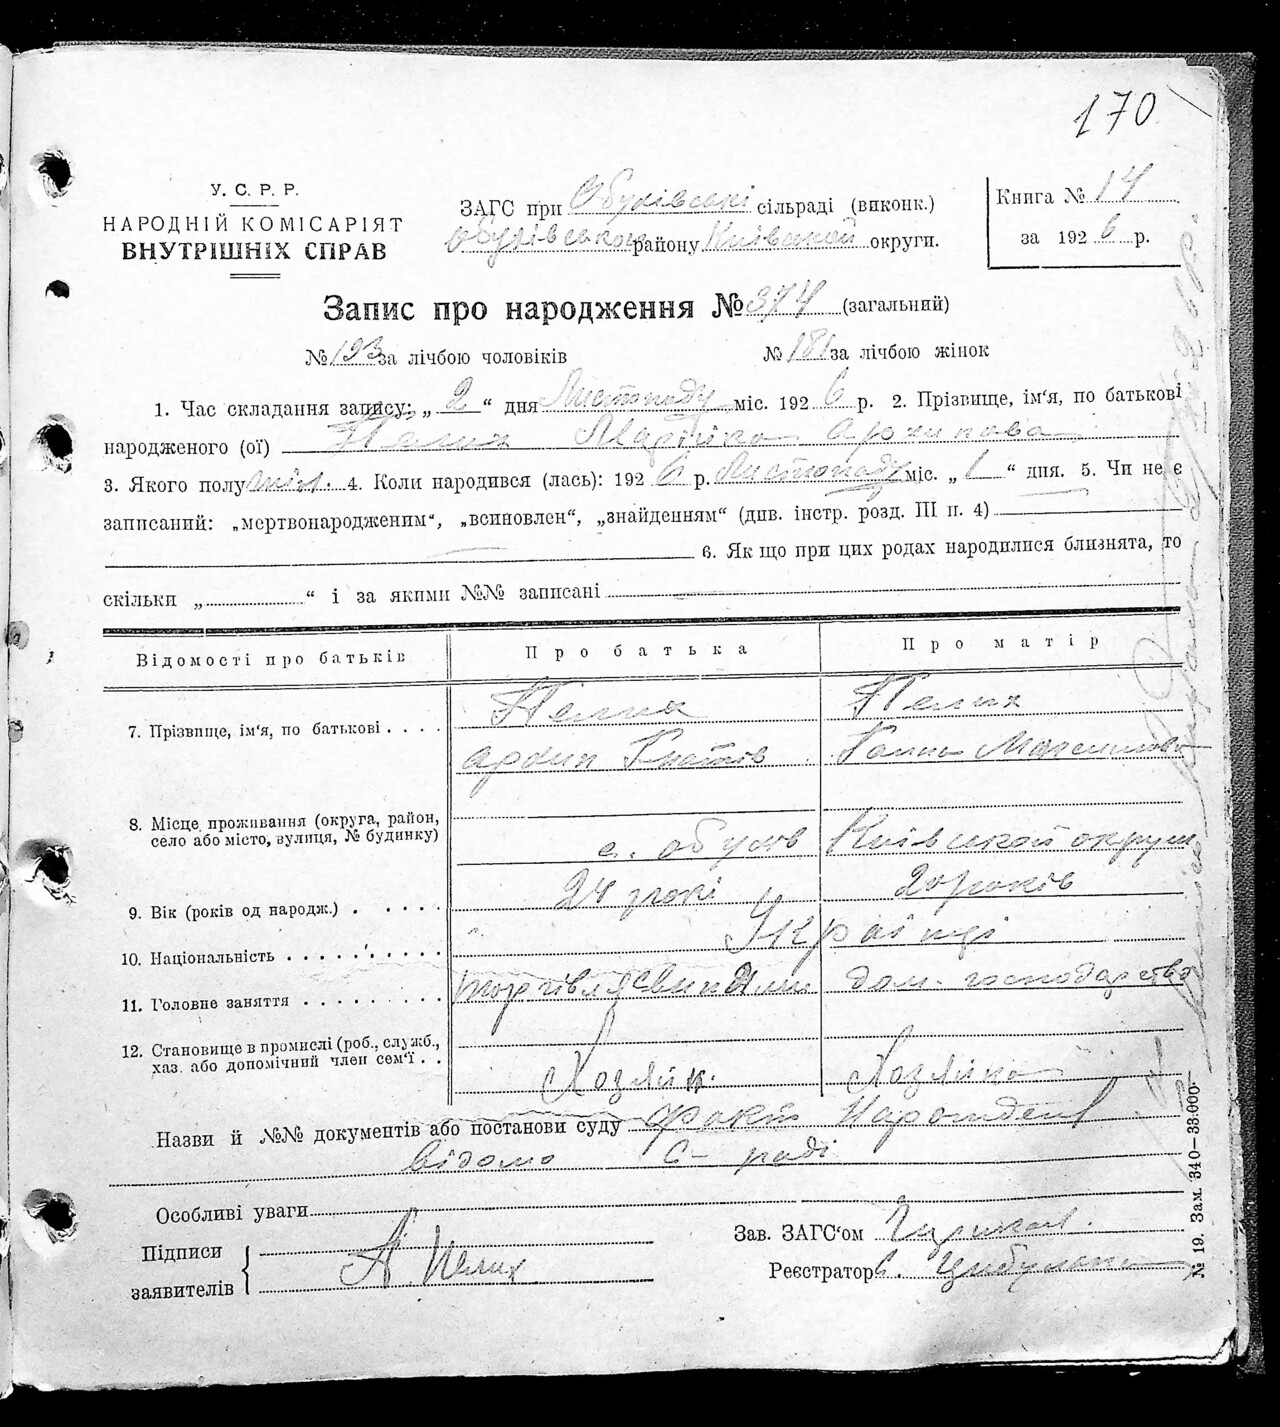 170
У. С. Р. Р.
НАРОДНІЙ КОМІСАРІЯТ
ВНУТРІШНІХ СПРАВ
ЗАГС при Обухівські сільраді (виконк.)
Обухівського району Київської округи.
Книга № 14
за 1926 р.
Запис про народження № 374 (загальний)
№ 193 за лічбою чоловіків № 181 за лічбою жінок
1. Час складання запису: „ 2 “ дня Листопаду міс. 1926 р. 2. Прізвище, ім'я, по батькові
народженого (ої) Пелих Марійка Архипова
3. Якого полу жін. 4. Коли народився (лась): 1926 р. Листопаду міс. „ 1 “ дня. 5. Чи не є
записаний: „мертвонародженим“, „всиновлен“, „знайденням“ (див. інстр. розд. III п. 4)
6. Якщо при цих родах народилися близнята, то
скільки „ “ і за якими №№ записані
Відомості про батьків Про батька Про матір
7. Прізвище, ім'я, по батькові . . . . Пелих Пелих
Архип Гнатів Ганна Максимова
8. Місце проживання (округа, район,
село або місто, вулиця, № будинку) с. Обухів Київської округи
9. Вік (років од народж.) . . . . . 24 років 20 років
10. Національність . . . . . . . . . . Українці
11. Головне заняття . . . . . . . . . торгівля свинями дом. господарство
12. Становище в промислі (роб., служб.,
хаз. або допомічний член сем'ї . . Хозяїн. Хозяйка
Назви й №№ документів або постанови суду факт Народжен
відомо С-раді
Особливі уваги
Підписи
заявителів
А Пелих
Зав. ЗАГС'ом
Реєстратор С. Цибулька
№ 19. Зам. 340—33.000.